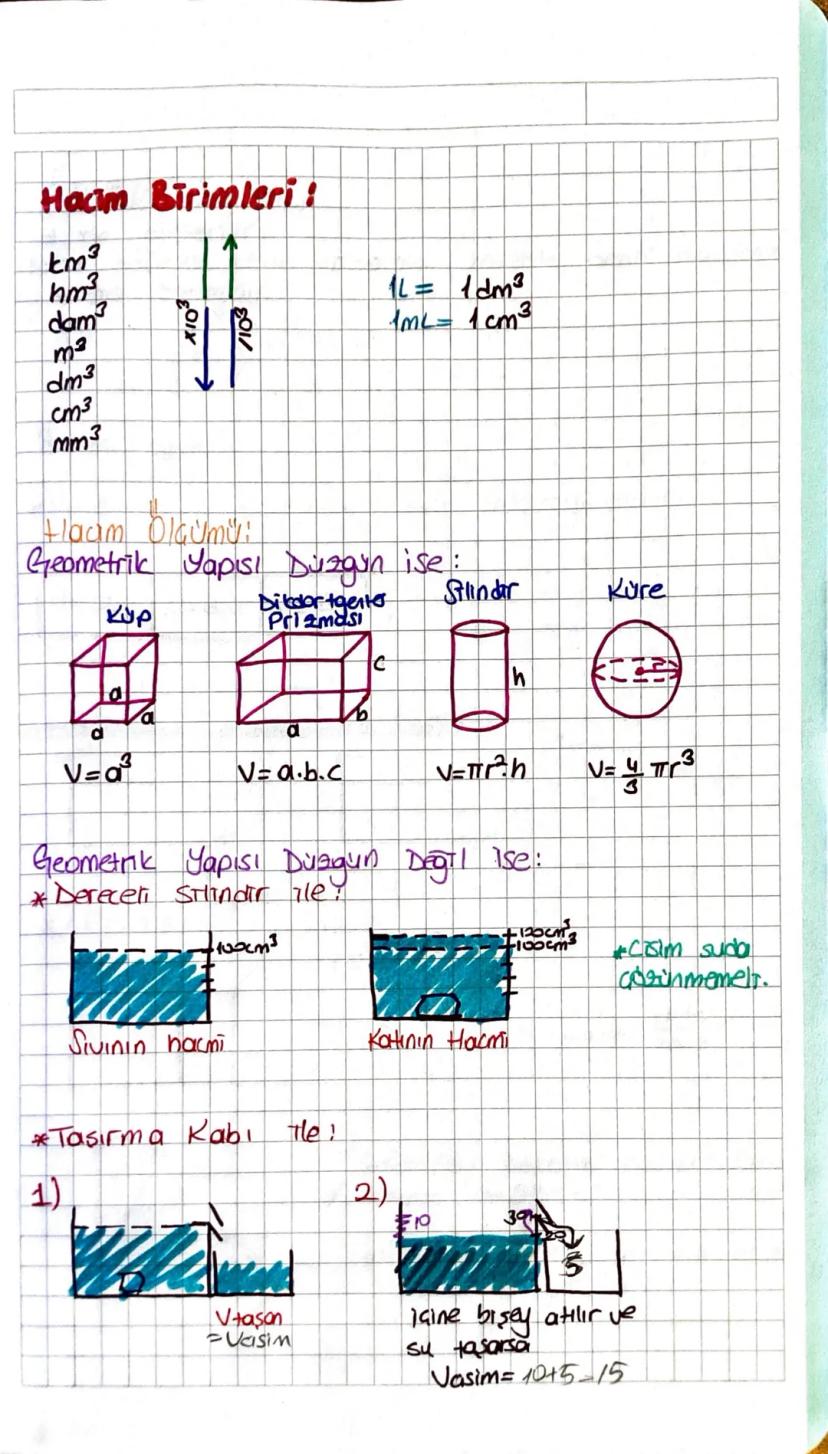 Hacim Birimleri!
km³
hm³
dam³
m³
dm³
cm³
mm³
x10³
/10³
1L = 1 dm³
1mL = 1 cm³
Hacim Ölçümü:
Geometrik Yapısı Düzgün ise:
Küp
a
a
a
V=a³
Dikdörtgenler
Prizması
c
b
a
V=a.b.c
Silindir
h
V=πr².h
Küre
r
V=4/3 πr³
Geometrik Yapısı Düzgün Değil ise:
*Dereceli silindir ile:
100cm³
Sıvının hacmi
120cm³
100cm³
Katının Hacmi
*Cisim suda
çözünmemeli.
*Tasırma Kabı ile!
1)
Vtaşan
=Vcisim
2)
10
30
20
5
içine bişey atılır ve
su taşarsa
Vcisim= 10+5=15